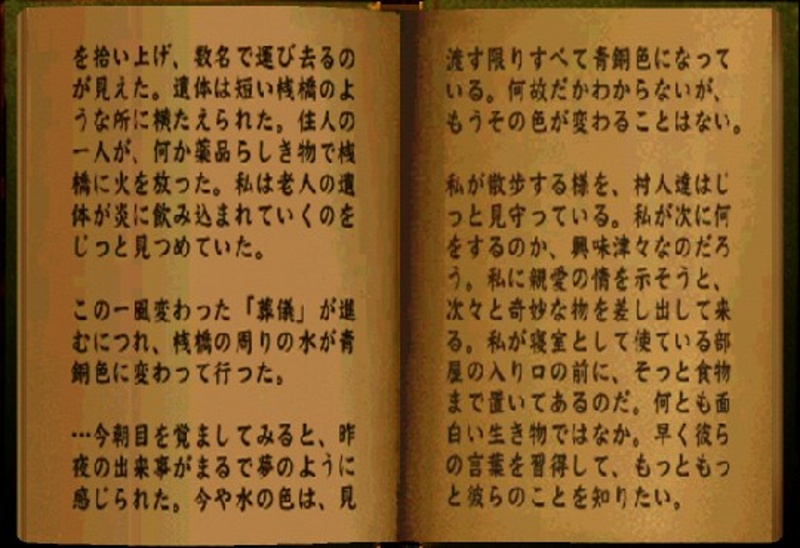 を拾い上げ、数名で運び去るの
が見えた。遺体は短い桟橋のよ
うな所に横たえられた。住人の
一人が、何か薬品らしき物で桟
橋に火を放った。私は老人の遺
体が炎に飲み込まれていくのを
じっと見つめていた。
この一風変わった「葬儀」が進
むにつれ、桟橋の周りの水が青
銅色に変わって行った。
…今朝目を覚ましてみると、昨
夜の出来事がまるで夢のように
感じられた。今や水の色は、見
渡す限りすべて青銅色になって
いる。何故だかわからないが、
もうその色が変わることはない。
私が散歩する様を、村人達はじ
っと見守っている。私が次に何
をするのか、興味津々なのだろ
う。私に親愛の情を示そうと、
次々と奇妙な物を差し出して来
る。私が寝室として使ている部
屋の入り口の前に、そっと食物
まで置いてあるのだ。何とも面
白い生き物ではなか。早く彼ら
の言葉を習得して、もっともっ
と彼らのことを知りたい。